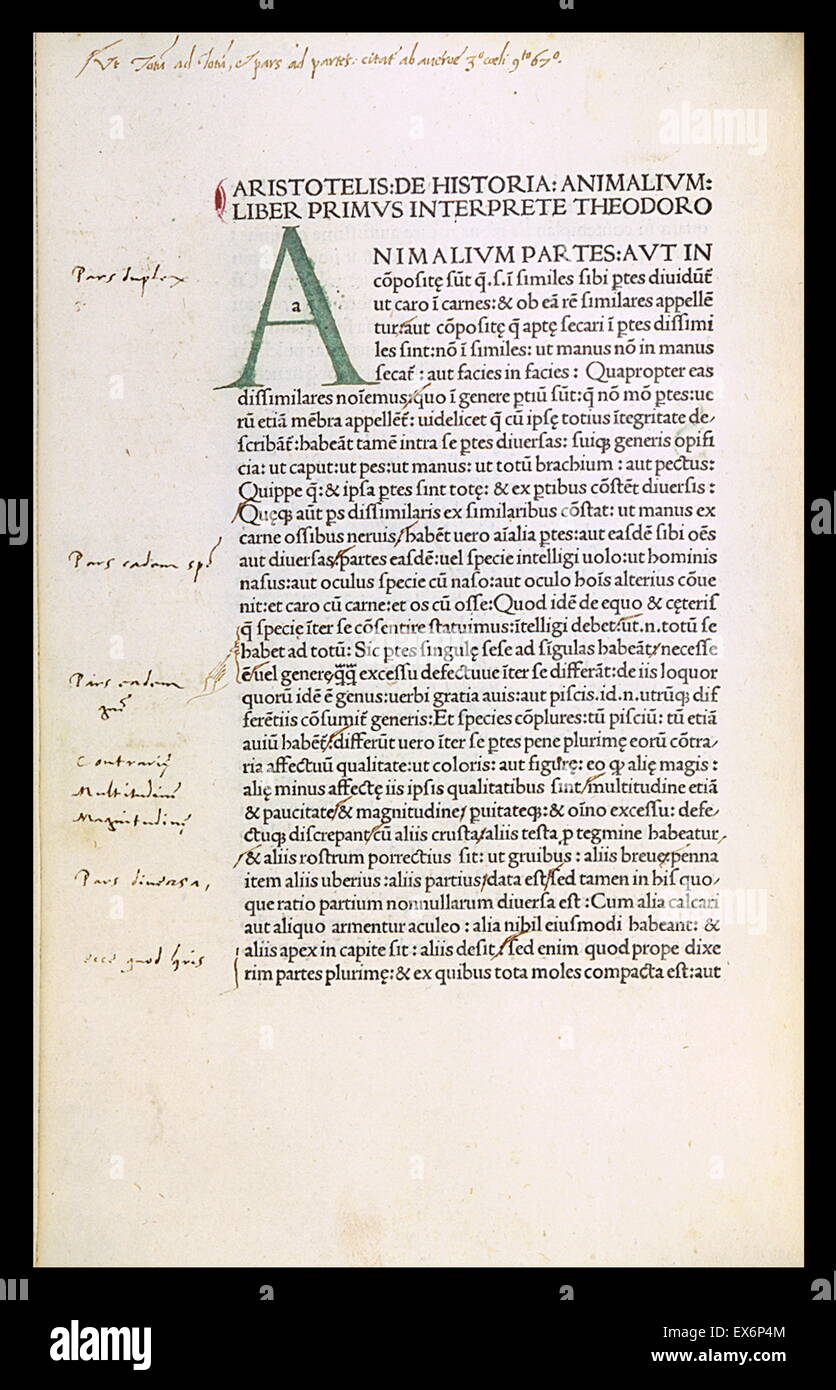 Ut Totũ ad Totũ, et pars ad partes: citat ab averoe 3º cœli 9to 67º.
ARISTOTELIS:DE HISTORIA: ANIMALIVM:
LIBER PRIMVS INTERPRETE THEODORO
A
a
NIMALIVM PARTES:AVT IN
cõpositę sũt q̃.s.ĩ similes sibi ptes diuidũt̃
ut caro ĩ carnes:& ob eã rẽ similares appellẽ
tur:aut cõpositę q̃ aptę secari ĩ ptes dissimi
les sint:nõ ĩ similes: ut manus nõ in manus
secat̃ : aut facies in facies : Quapropter eas
dissimilares noĩemus:quo ĩ genere ptiũ sũt:q̃ nõ mõ ptes:ue
rũ etiã mẽbra appellẽt̃: uidelicet q̃ cũ ipsę totius ĩtegritate de-
scribãt̃:habeãt tamẽ intra se ptes diuersas: suiq; generis opifi
cia: ut caput:ut pes:ut manus: ut totũ brachium : aut pectus:
Quippe q̃: & ipsa ptes sint totę: & ex ptibus cõstẽt diuersis :
Quęq; aũt ps dissimilaris ex similaribus cõstat: ut manus ex
carne ossibus neruis/habẽt uero aĩalia ptes:aut easdẽ sibi oẽs
aut diuersas/partes easdẽ:uel specie intelligi uolo:ut hominis
nasus:aut oculus specie cũ naso:aut oculo hoĩs alterius cõue
nit:et caro cũ carne:et os cũ osse:Quod idẽ de equo & cęteris
q̃ specię ĩter se cõsentire statuimus:ĩtelligi debet/ut.n.totũ se
habet ad totũ: Sic ptes singulę sese ad sĩgulas habeãt/necesse
ẽ/uel genere:q̃q̃ excessu defectuue ĩter se differãt:de iis loquor
quorũ idẽ ẽ genus:uerbi gratia auis:aut piscis.id.n.utrũq; dif
ferẽtiis cõsumit̃ generis:Et species cõplures:tũ pisciũ: tũ etiã
auiũ habẽt̃/differũt uero ĩter se ptes pene plurimę eorũ cõtra-
ria affectuũ qualitate:ut coloris: aut figurę: eo q alię magis :
alię minus affectę iis ipsis qualitatibus sint/multitudine etiã
& paucitate/& magnitudine/puitateq;:& oĩno excessu: defe-
ctuq; discrepant/cũ aliis crusta/aliis testa p tegmine habeatur,
/& aliis rostrum porrectius sit: ut gruibus : aliis breue/penna
item aliis uberius :aliis partius/data est/sed tamen in his quo-
que ratio partium nonnullarum diuersa est :Cum alia calcari
aut aliquo armentur aculeo : alia nihil eiusmodi habeant: &
aliis apex in capite sit : aliis desit/sed enim quod prope dixe
rim partes plurimę:& ex quibus tota moles compacta est:aut
Pars duplex
Pars eadem spẽ
Pars eadem
gñe
Contrariũ
Multitudinũ
Magnitudinũ
Pars diuersa,
alamy
alamy
alamy stock photo
EX6P4M
www.alamy.com